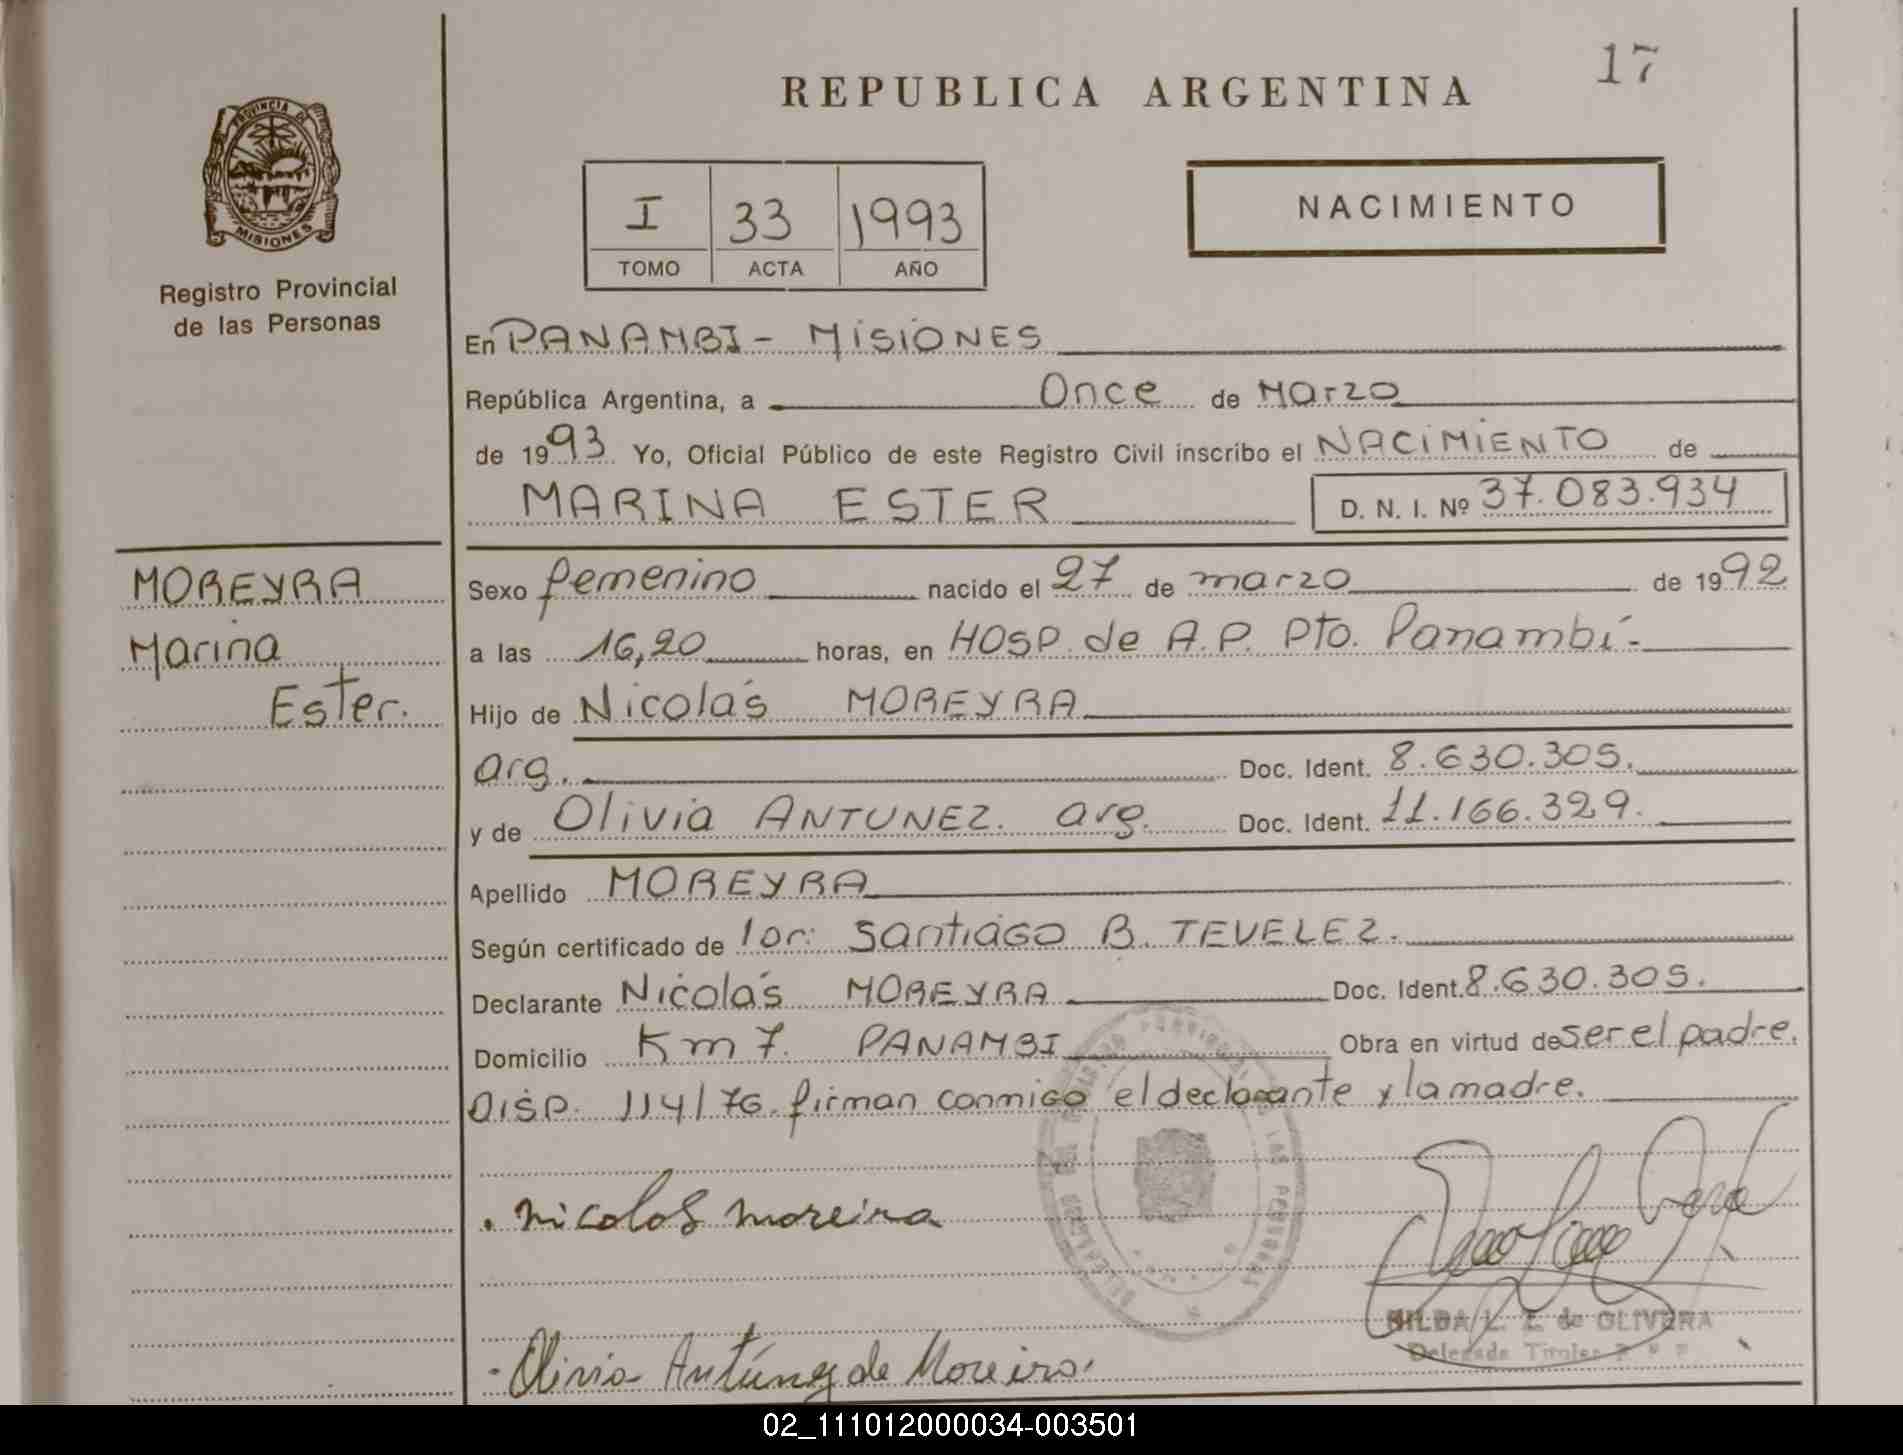 17
REPUBLICA ARGENTINA
PROVINCIA DE
MISIONES
Registro Provincial
de las Personas
I 33 1993
TOMO ACTA AÑO
NACIMIENTO
En PANAMBI - MISIONES
República Argentina, a Once de Marzo
de 1993 Yo, Oficial Público de este Registro Civil inscribo el NACIMIENTO de
MARINA ESTER D. N. I. Nº 37.083.934
MOREYRA
Marina
Ester.
Sexo femenino nacido el 27 de marzo de 1992
a las 16,20 horas, en HOSP. de A.P. Pto. Panambí.-
Hijo de Nicolás MOREYRA
arg. Doc. Ident. 8.630.305.
y de Olivia ANTUNEZ. arg. Doc. Ident. 11.166.329.
Apellido MOREYRA
Según certificado de Santiago B. TEVELEZ.
Declarante Nicolás MOREYRA Doc. Ident. 8.630.305.
Domicilio Km 7. PANAMBI Obra en virtud de ser el padre.
DISP. 114/76. firman conmigo el declarante y la madre.
nicolas moreira
HILDA L. Z. de OLIVERA
Delegada Titular
Olivia Antúnez de Moreira
02_111012000034-003501